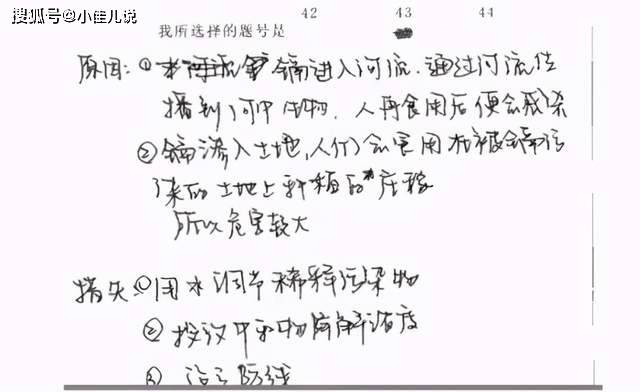 搜狐号@小佳儿说
42 43 44
我所选择的题号是
原因:① 镉进入河流.通过河流传
播到河中生物.人再食用后便会感染
②镉渗入土地,人们会食用在被镉污
染的土地上种植的庄稼
所以危害较大
措失①用水调节稀释污染物
②投放中和物降解浓度
③ 沿 防线